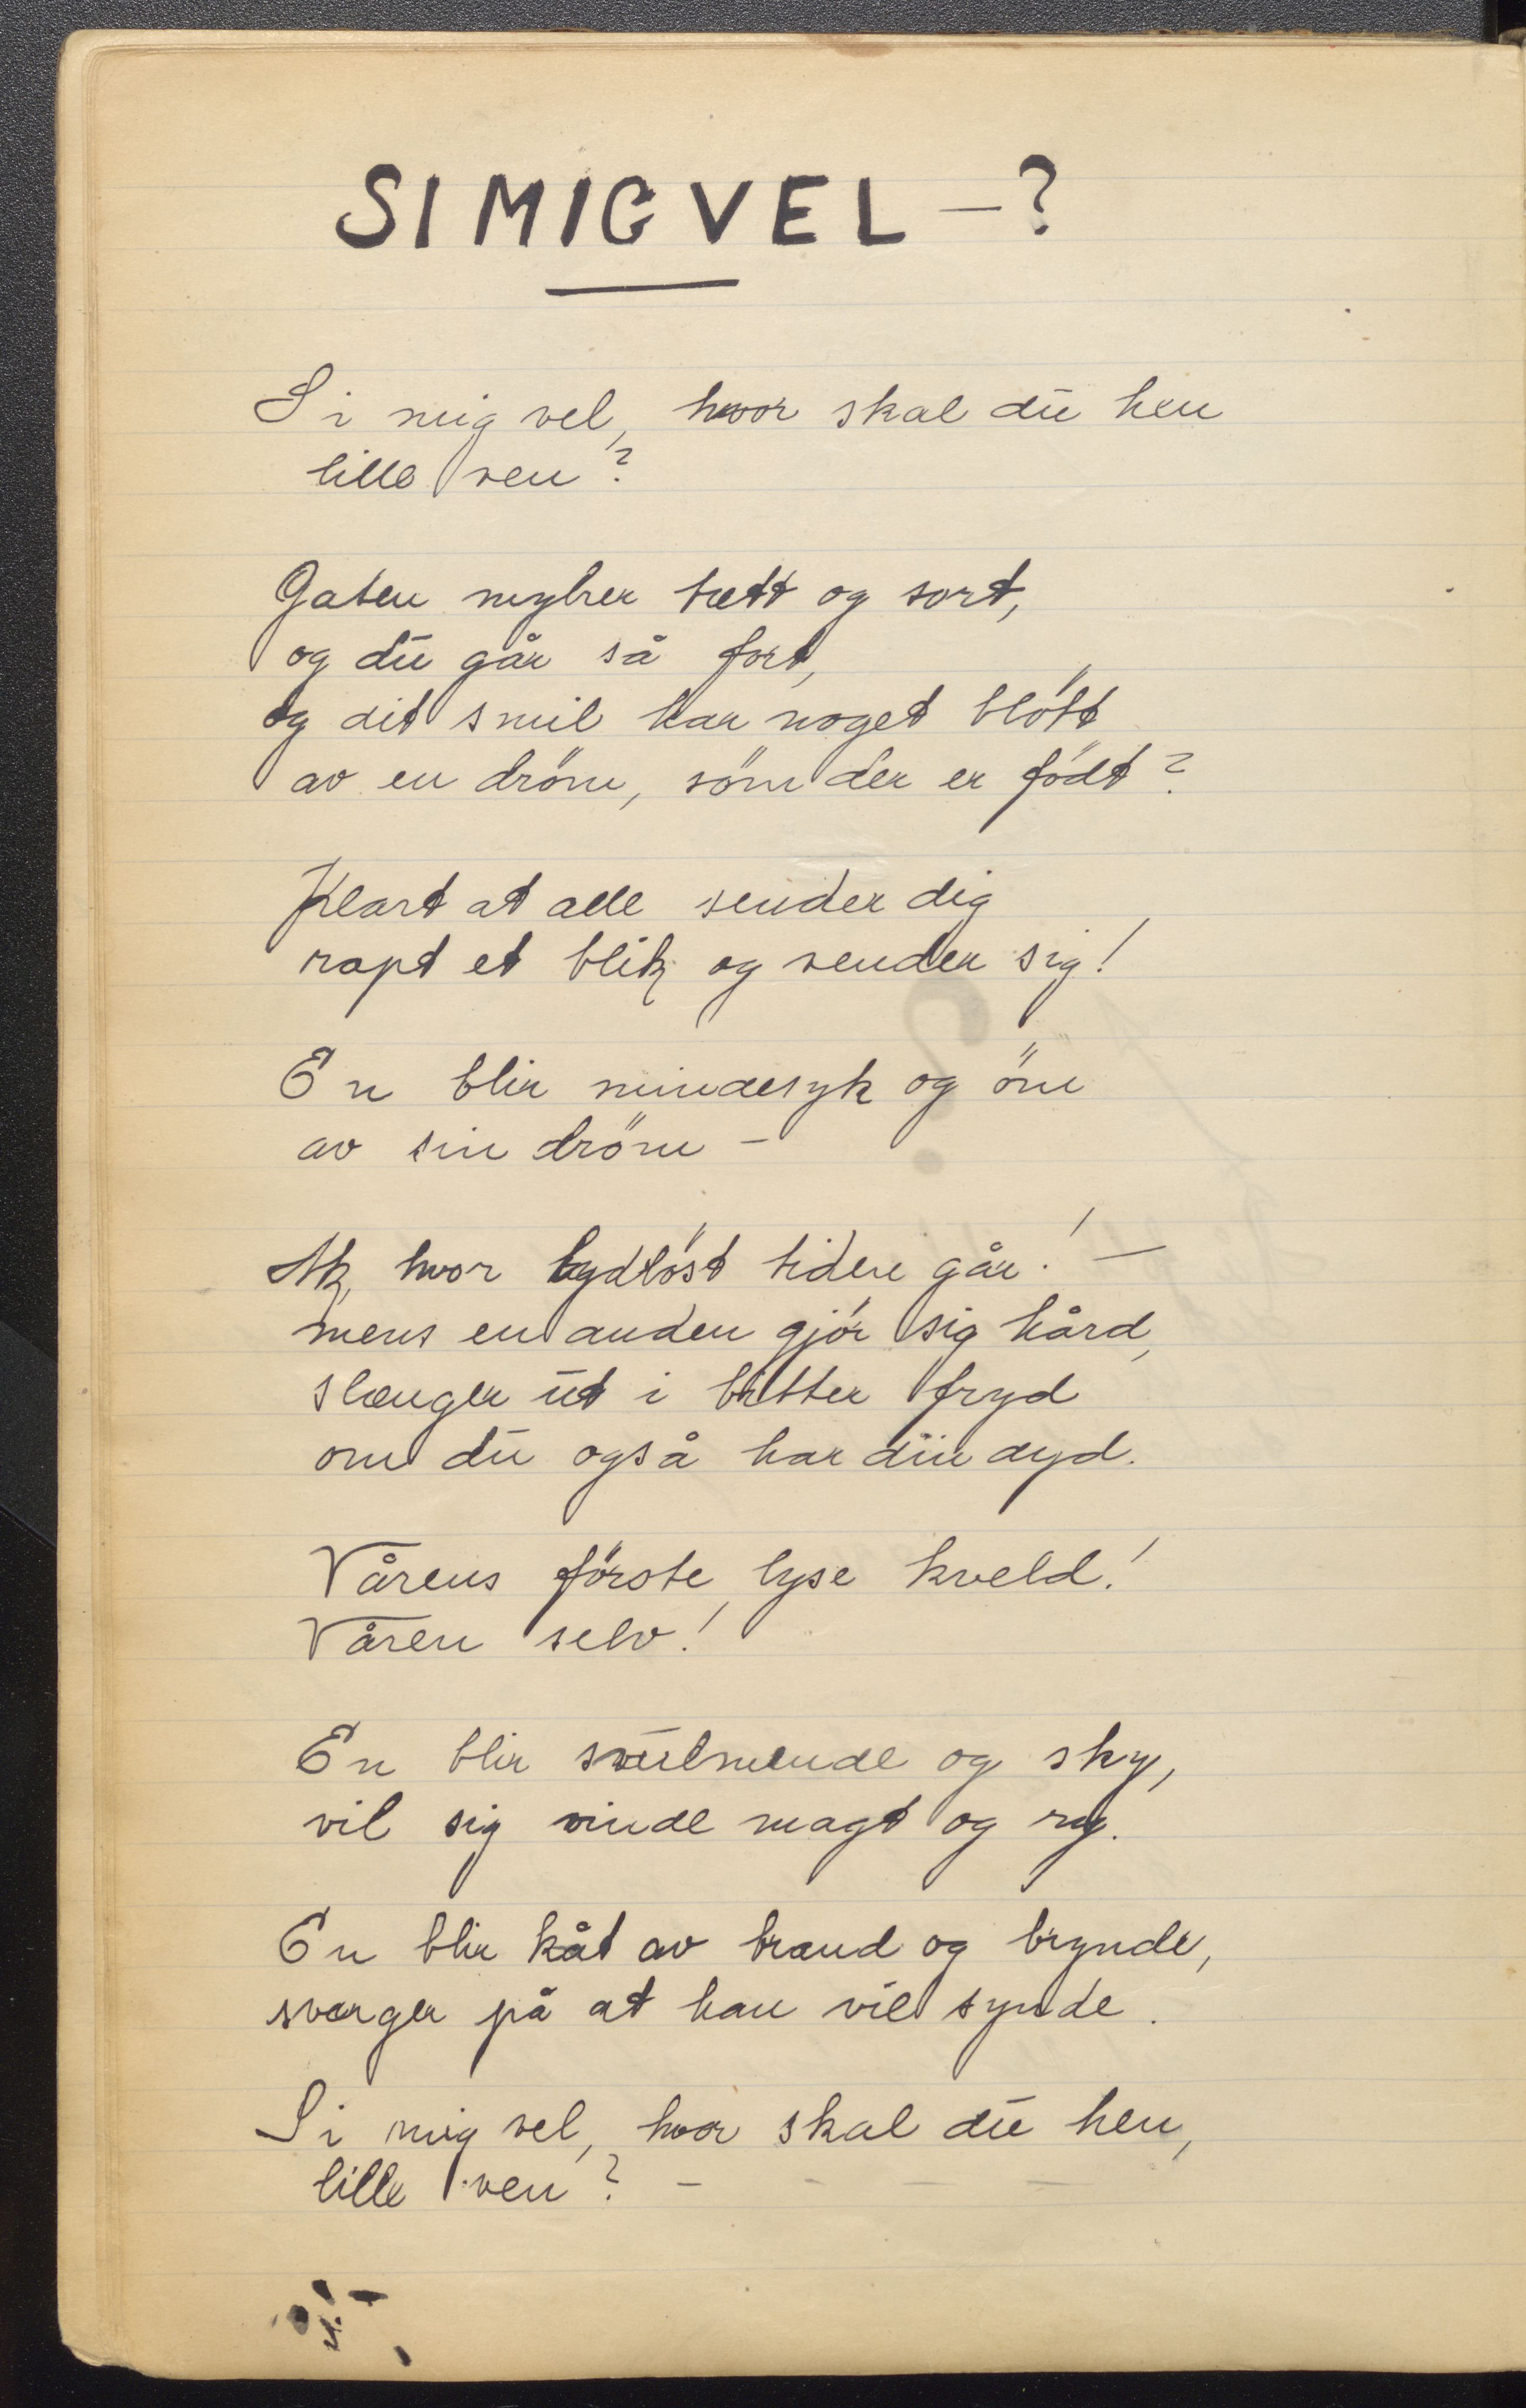 SI MIG VEL —?
Si mig vel, hvor skal du hen
lille ven?
Gaten myldrer tætt og sort,
og du går så fort,
og dit smil har noget bløtt
av en drøm, som der er født?
Klart at alle sender dig
rapt et blik og vender sig!
En blir mindesyk og øm
av sin drøm –
Ak, hvor lydløst tiden går! —
mens en anden gjør sig hård,
slænger ut i bitter fryd
om du også har din dyd.
Vårens første, lyse kveld!
Våren selv!
En blir svulmende og sky,
vil sig vinde magt og ry.
En blir kåt av brand og brynde,
sværger på at han vil synde.
Si mig vel, hvor skal du hen,
lille ven? – – – —